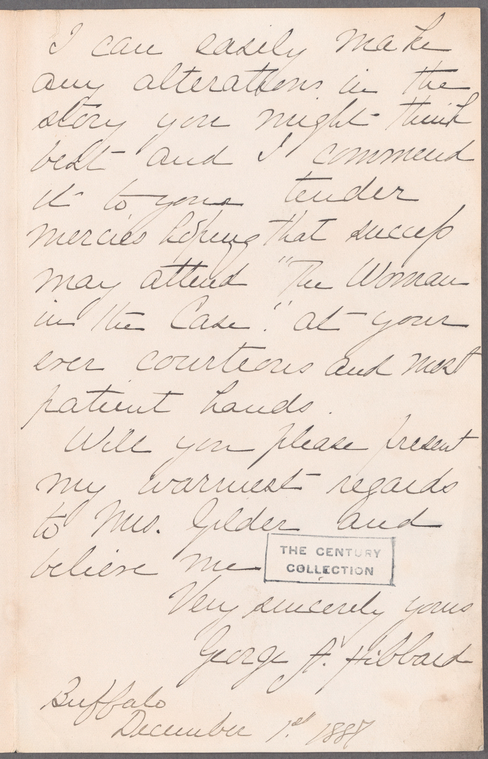 I can easily make
any alterations in the
story you might think
best and I commend
it to your tender
mercies hoping that success
may attend "The Woman
in the Case". at your
ever courteous and most
patient hands.
Will you please present
my warmest regards
to Mrs. Gilder and
believe me
THE CENTURY
COLLECTION
Very sincerely yours
George A. Hibbard
Buffalo
December 1st. 1887